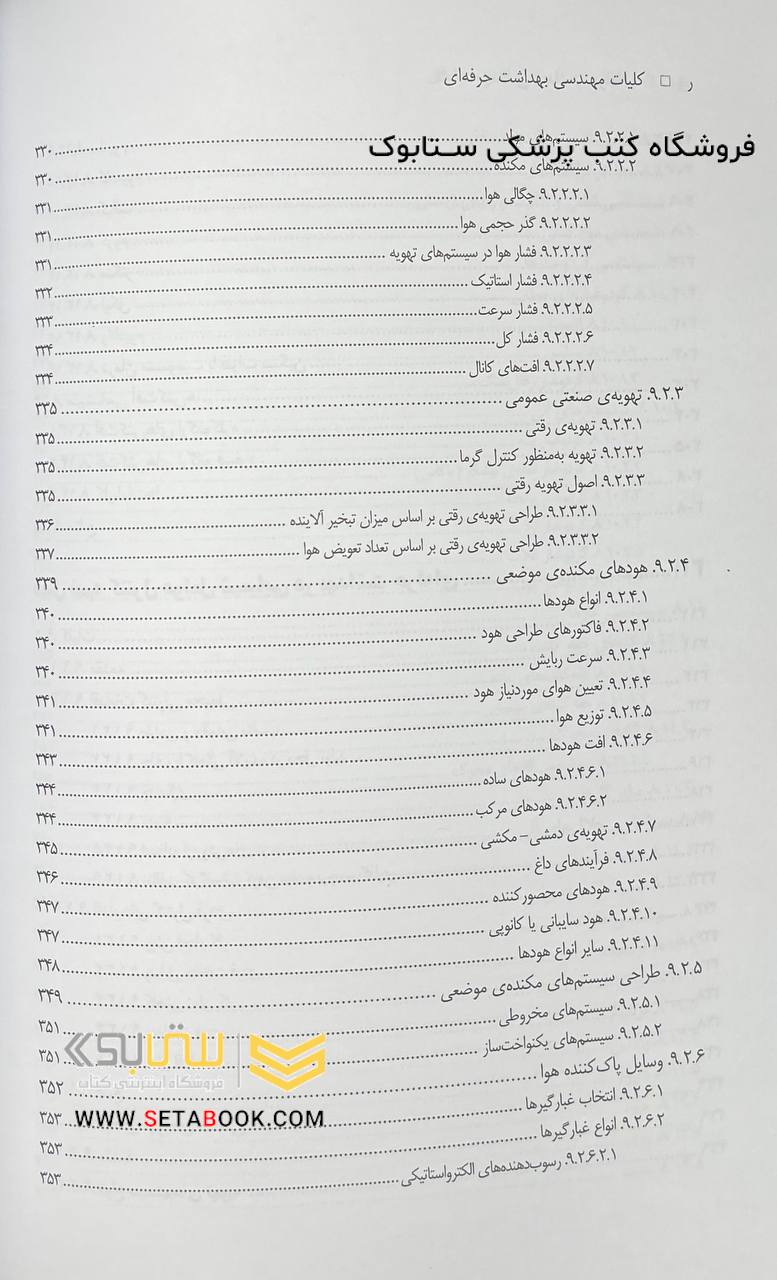 ر □ کلیات مهندسی بهداشت حرفه‌ای
فروشگاه کتب پزشکی ستابوک
۹.۲.۲.۱. سیستم‌های مولد ۳۳۰
۹.۲.۲.۲. سیستم‌های مکنده ۳۳۰
۹.۲.۲.۲.۱. چگالی هوا ۳۳۱
۹.۲.۲.۲.۲. گذر حجمی هوا ۳۳۱
۹.۲.۲.۲.۳. فشار هوا در سیستم‌های تهویه ۳۳۱
۹.۲.۲.۲.۴. فشار استاتیک ۳۳۲
۹.۲.۲.۲.۵. فشار سرعت ۳۳۳
۹.۲.۲.۲.۶. فشار کل ۳۳۴
۹.۲.۲.۲.۷. افت‌های کانال ۳۳۴
۹.۲.۳. تهویه‌ی صنعتی عمومی ۳۳۵
۹.۲.۳.۱. تهویه‌ی رقتی ۳۳۵
۹.۲.۳.۲. تهویه به‌منظور کنترل گرما ۳۳۵
۹.۲.۳.۳. اصول تهویه رقتی ۳۳۵
۹.۲.۳.۳.۱. طراحی تهویه‌ی رقتی بر اساس میزان تبخیر آلاینده ۳۳۶
۹.۲.۳.۳.۲. طراحی تهویه‌ی رقتی بر اساس تعداد تعویض هوا ۳۳۷
۹.۲.۴. هودهای مکنده‌ی موضعی ۳۳۹
۹.۲.۴.۱. انواع هودها ۳۴۰
۹.۲.۴.۲. فاکتورهای طراحی هود ۳۴۰
۹.۲.۴.۳. سرعت ربایش ۳۴۰
۹.۲.۴.۴. تعیین هوای موردنیاز هود ۳۴۱
۹.۲.۴.۵. توزیع هوا ۳۴۱
۹.۲.۴.۶. افت هودها ۳۴۳
۹.۲.۴.۶.۱. هودهای ساده ۳۴۴
۹.۲.۴.۶.۲. هودهای مرکب ۳۴۴
۹.۲.۴.۷. تهویه‌ی دمشی- مکشی ۳۴۵
۹.۲.۴.۸. فرآیندهای داغ ۳۴۶
۹.۲.۴.۹. هودهای محصورکننده ۳۴۷
۹.۲.۴.۱۰. هود سایبانی یا کانوپی ۳۴۷
۹.۲.۴.۱۱. سایر انواع هودها ۳۴۸
۹.۲.۵. طراحی سیستم‌های مکنده‌ی موضعی ۳۴۹
۹.۲.۵.۱. سیستم‌های مخروطی ۳۵۱
۹.۲.۵.۲. سیستم‌های یکنواخت‌ساز ۳۵۱
۹.۲.۶. وسایل پاک‌کننده هوا ۳۵۲
۹.۲.۶.۱. انتخاب غبارگیرها ۳۵۳
۹.۲.۶.۲. انواع غبارگیرها ۳۵۳
۹.۲.۶.۲.۱. رسوب‌دهنده‌های الکترواستاتیکی ۳۵۳
فروشگاه اینترنتی کتاب
WWW.SETABOOK.COM